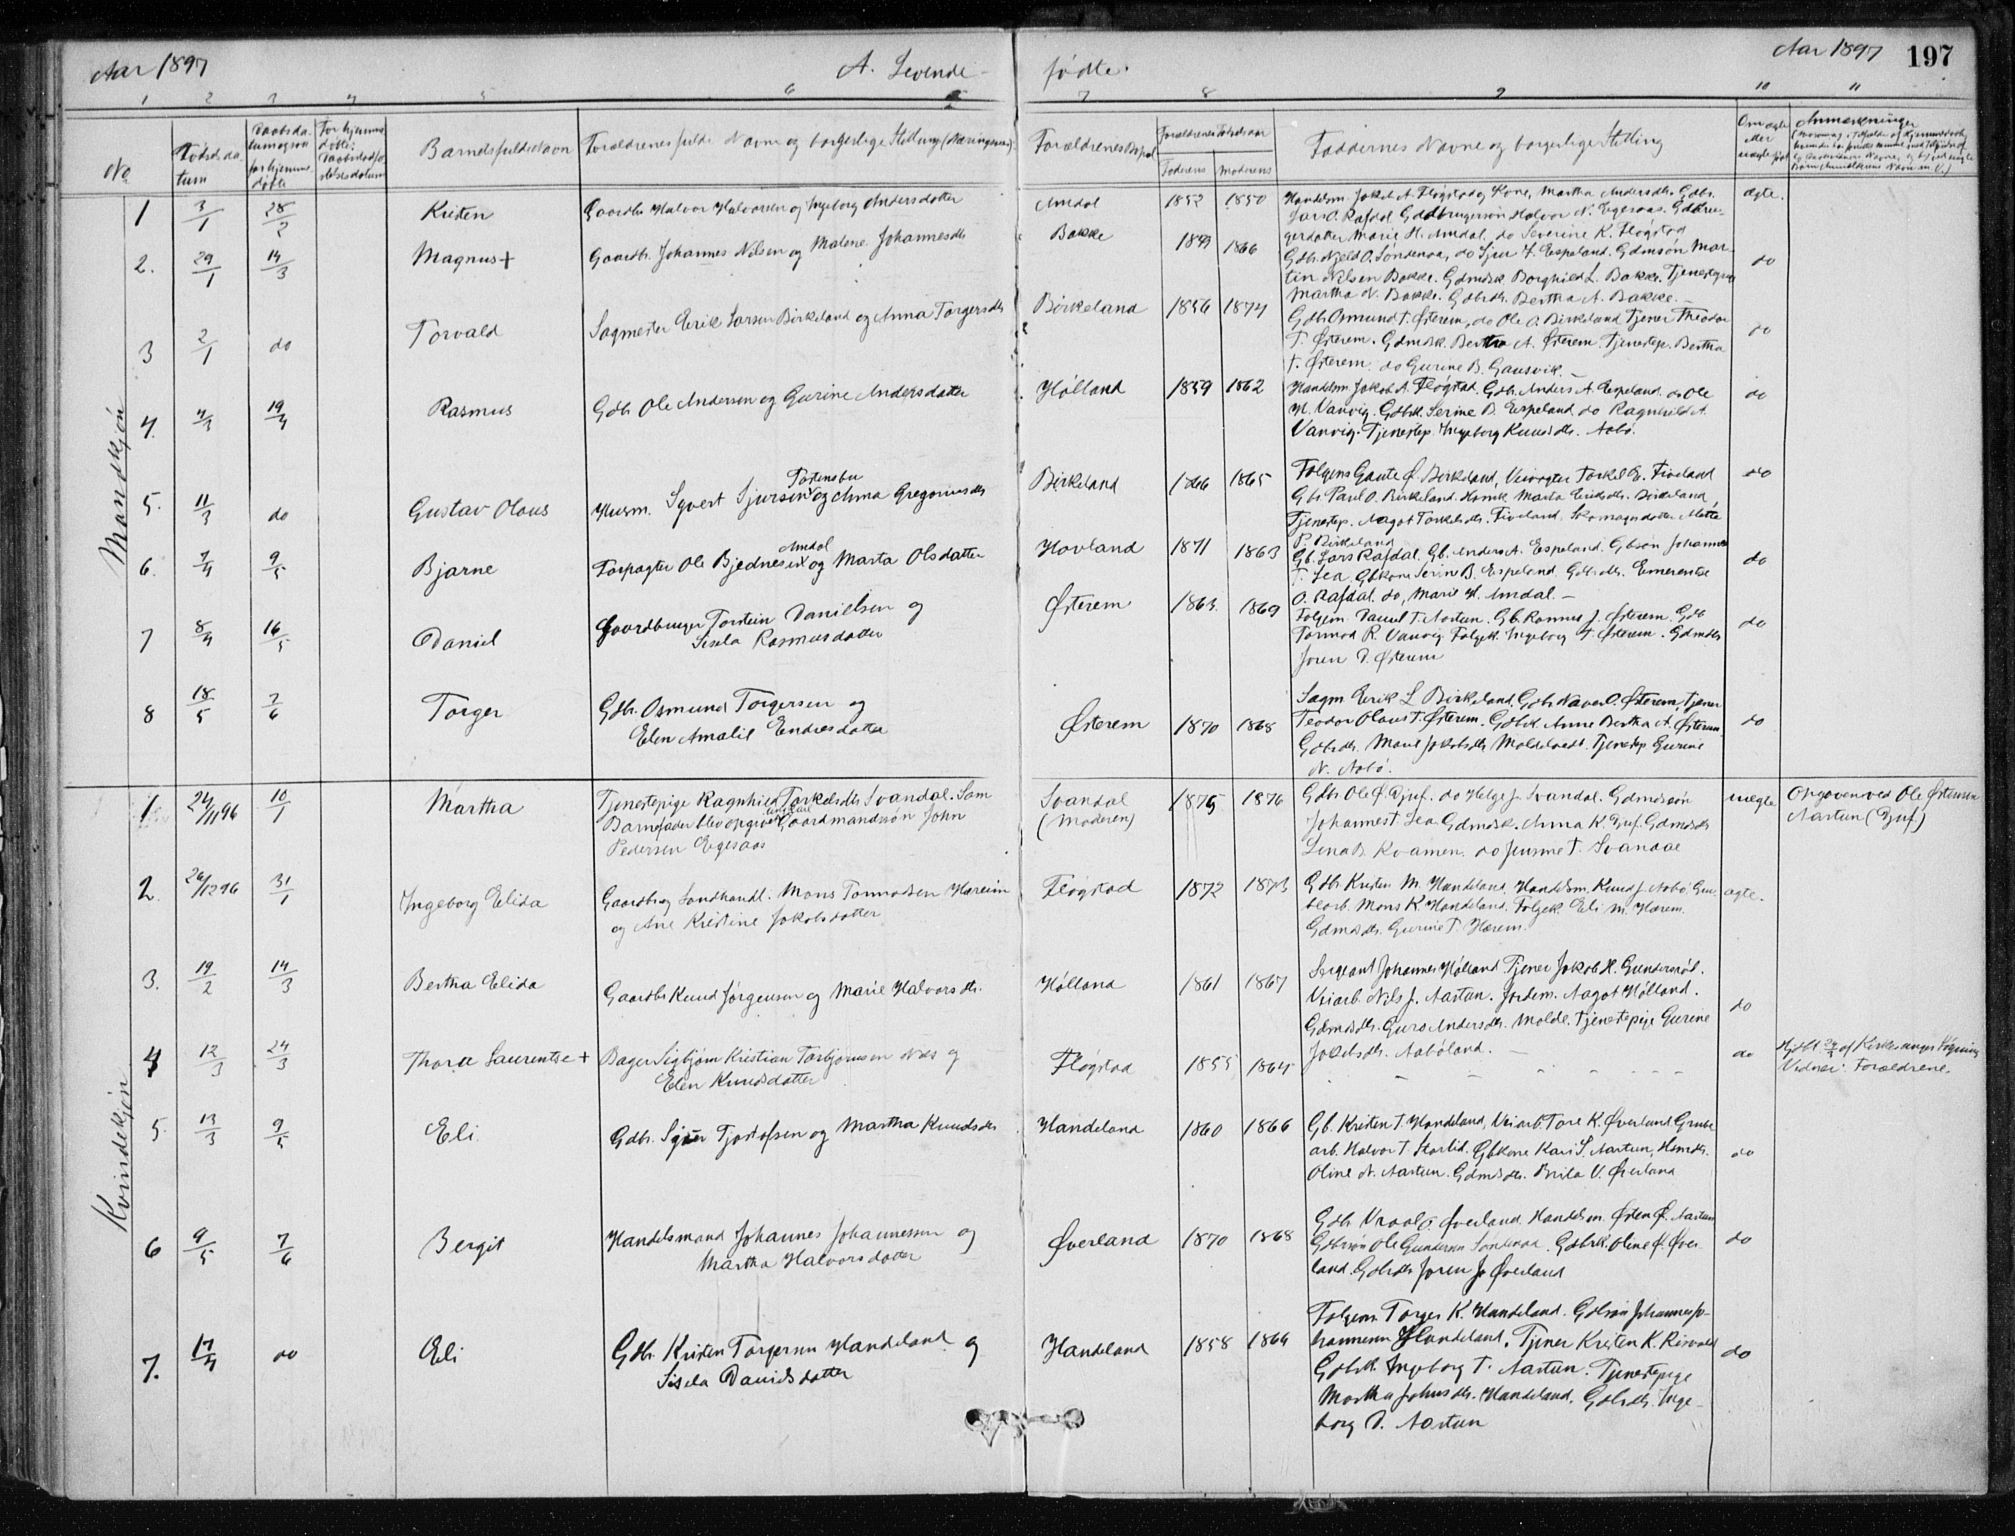 Aar 1897
A. Levende
fødte.
Aar 1897
197
1 2 3 4 5 6
7 8 9 10 11
No
Fødselsda-
tum
Barnets fulde Navn
Forældrenes fulde Navne og borgerlige Stilling (Næringsvei).
Forældrenes Bopæl
Forældrenes Fødselsaar
Faderens Moderens
Faddernes Navne og borgerlige Stilling
Om ægte
eller
uægte født
Anmærkninger
Mandkjøn
1 3/1 28/2 Kristen Gaardbr Halvor Halvorsen og Ingeborg Andersdatter Amdal 1852 1850 ægte.
Handelsm. Jakob A. Fløgstad og Kone, Martha Andersdtr. Gdbr.
Lars O. Rafdal Gaardbrugersøn Halvor N. Egesaas. Gdbru-
gerdatter Marie H. Amdal, do Severine K. Fløgstad
2. 29/1 14/3 Magnus + Gaardbr. Johannes Nilsen og Malene Johannesdtr Bakke 1866 do
Gdbr. Njeld O. Søndenaa, do Sjur T. Espeland. Gdmsøn Mar-
tin Nilsen Bakke. Gdmdsk. Borghild L. Bakke. Tjenestepige
Martha N. Bakke. Gdbrdtr. Bertha A. Bakke. –
3 2/1 do Torvald Sagmester Erik Larsen Birkeland og Anna Torgersdtr Birkeland 1856 1874 do
Gdbr Osmund T. Østerem, do Ole O. Birkeland Tjener Theodor
T. Østerem. Gdmdsk. Bertha A. Østerem. Tjenestep. Bertha
T. Østerem. do Gurine B. Gausvik. –
4. 4/3 19/4 Rasmus Gdbr Ole Andersen og Gurine Andersdatter Hølland 1859 1862 do
Handelsm. Jakob A. Fløgstad. Gdbr. Anders A. Espeland. do Ole
M. Vanvig. Gdbrk. Serine B. Espeland do Ragnhild A.
Vanvig. Tjenestep. Ingeborg Knudsdtr. Aabø.
5. 11/3 do Gustav Olaus Husm. Syvert Sjursen Torstensbu og Anna Gregoriusdtr Birkeland 1866 1865 do
Folgem Gaute Ø. Birkeland, Veivogter Torkel G. Fiveland
Gbr Paul O. Birkeland. Hsmk. Marta Eriksdtr. Birkeland,
Tjenestep. Aagot Torkelsdtr. Fiveland. Skomagerdatter Mette
P. Birkeland
6. 7/4 9/5 Bjarne Forpagter Ole Bjednesen Amdal og Marta Olsdatter Hovland 1871 1863 do
Gb. Lars Rafdal. Gb. Anders A. Espeland. Gbsøn Johannes
T. Lea. Gbkone Serine B. Espeland. Gdbrdtr. Emerentse
O. Rafdal. do, Marie H. Amdal. –
7 8/4 16/5 Daniel Gaardbruger Torstein Danielsen og
Sisela Rasmusdatter Østerem 1863. 1869 do
Folgem. Daniel T. Aartun. Gb. Rasmus J. Østerem. Gdb
Tormod R. Vanvig Folgek. Ingeborg T. Østerem. Gdmdtr
Joren D. Østerem
8 18/5 7/6 Torger Gdbr. Osmund Torgersen og
Elen Amalie Endresdatter Østerem 1870 1868 do
Sagm Erik L Birkeland. Gdbr Naver O. Østerem, Tjener
Teodor Olaus T. Østerem. Gdbrk Anne Bertha A. Østerem
Gdbrdtr. Marie Jakobsdtr Moldetvedt. Tjenestep Gurine
N. Aabø.
Kvindekjøn
1. 24/11 96 10/1 Martha Tjenestepige Ragnhild Torkelsdtr Svandal. Som
Barnefader blev opgivet ungkarl Gaardmandssøn John
Pedersen Egesaas Svandal
(Moderen) 1875 1876 uægte
Gdbr Ole Ø. Djuf. do Helge J. Svandal. Gdmdssøn
Johannes T. Lea. Gdmdsk. Anna K. Djuf. Gdmdsdtr
Lina B. Kvamen. do T. Svandal
Opgaven ved Ole Østensen
Aartun (Djuf)
2. 26/12 96 31/1 Ingeborg Elida Gaardbr og Landhandl. Mons Tormodsen Hareim
og Ane Kristine Jakobsdatter Fløgstad 1872 1873 ægte.
Gdbr Kristen M. Handeland. Handelsm. Knud J. Aabø Gru-
bearb. Mons K. Handeland. Folgek. Eli M. Harem.
Gdmdsdtr. Gurine T. Harem.
3. 19/2 14/3 Bertha Elida Gaardbr Knud Jørgensen og Marie Halvorsdtr. Hølland 1861 1867 do
Sergeant Johannes Hølland. Tjener Jakob H. Gundersrød.
Veiarb. Nils J. Aartun. Jordem. Aagot Hølland.
Gdmdsdtr. Guro Andersdtr. Molde. Tjenestepige Gurine
Jokelsdtr. Aabøland. –
4 12/3 24/3 Thora Laurentse + Bager Sigbjørn Kristian Torbjørnsen Næs og
Elen Knudsdatter Fløgstad 1855 1864 – – – do
Hjdbt. 24/3 af Kirkesanger Løgning
Vidner: Forældrene.
5. 13/3 9/5 Eli. Gdbr. Sjur Tjostofsen og Martha Knudsdtr Handeland 1860 1866 do
Gb. Kristen T. Handeland, Veiarb. Tore K. Øverland Grube
arb. Halvor T. Storlid. Gbkone Kari S. Aartun, Hsmdtr.
Oline N. Aartun. Gdmdsdtr. Brita V. Øverland
6 9/5 7/6 Bergit Handelsmand Johannes Johannessen og
Martha Halvorsdatter Øverland 1870 1868 do
Gdbr Vraal O. Øverland. Handelsm. Østen Ø. Aartun
Gdbrsøn Ole Gundersen Søndenaa. Gdbrk. Oline Ø. Øver-
land. Gdbrdtr Joren J. Øverland
7. 17/4 do Eli Gdbr. Kristen Torgersen Handeland og
Sisela Danielsdatter Handeland 1858 1864 do
Folgem. Torger K. Handeland. Gdbrsøn Johannes Jo-
hannessen Handeland. Tjener Kristen K. Risvold
Gdbrk. Ingeborg T. Aartun. Tjenestepige
Martha Johnsdtr. Handeland. Gdbrdtr. Inge-
borg D. Aartun